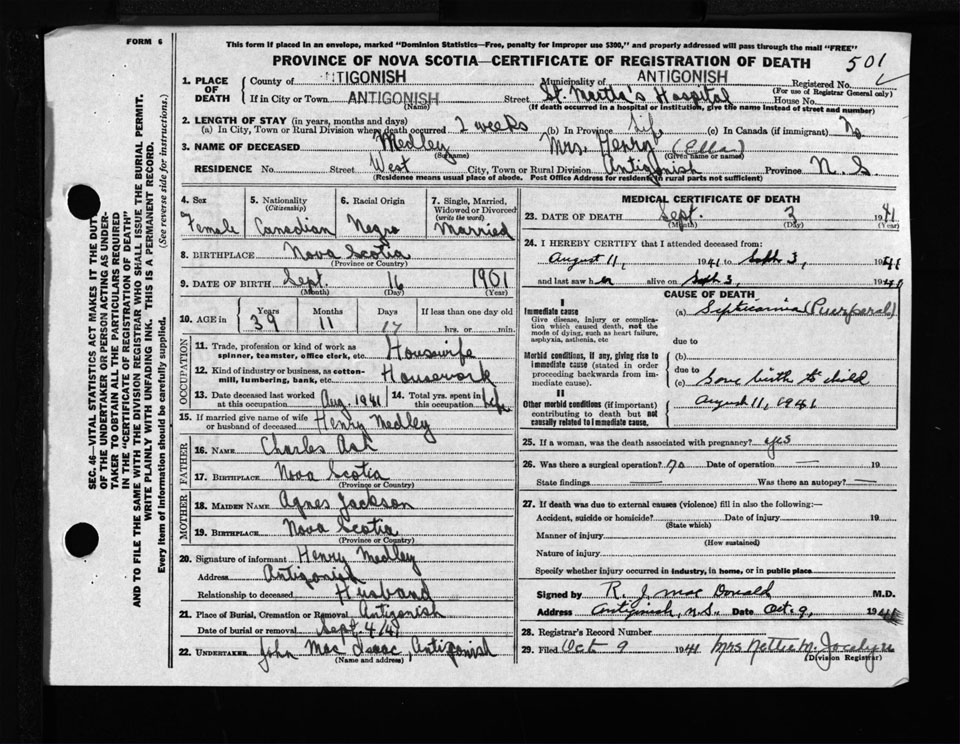 FORM 6
This form if placed in an envelope, marked "Dominion Statistics—Free, penalty for improper use $300," and properly addressed will pass through the mail "FREE"
PROVINCE OF NOVA SCOTIA—CERTIFICATE OF REGISTRATION OF DEATH
501
1. PLACE OF DEATH
County of NTIGONISH Municipality of ANTIGONISH Registered No.
(For use of Registrar General only)
If in City or Town ANTIGONISH Street St. Martha's Hospital House No.
(Name) (If death occurred in a hospital or institution, give the name instead of street and number)
2. LENGTH OF STAY (in years, months and days)
(a) In City, Town or Rural Division where death occurred 2 weeks (b) In Province Life (c) In Canada (if immigrant) No
3. NAME OF DECEASED Medley Mrs. Henry (Ella)
(Surname) (Given name or names)
RESIDENCE No. Street West City, Town or Rural Division Antigonish Province N. S
(Residence means usual place of abode. Post Office Address for residents in rural parts not sufficient)
SEC. 46—VITAL STATISTICS ACT MAKES IT THE DUTY
OF THE UNDERTAKER OR PERSON ACTING AS UNDER-
TAKER TO OBTAIN ALL THE PARTICULARS REQUIRED
IN THE "CERTIFICATE OF REGISTRATION OF DEATH"
AND TO FILE THE SAME WITH THE DIVISION REGISTRAR WHO SHALL ISSUE THE BURIAL PERMIT.
WRITE PLAINLY WITH UNFADING INK. THIS IS A PERMANENT RECORD.
Every item of information should be carefully supplied. (See reverse side for instructions.)
4. Sex Female
5. Nationality (Citizenship) Canadian
6. Racial Origin Negro
7. Single, Married, Widowed or Divorced (write the word) Married
8. BIRTHPLACE Nova Scotia
(Province or Country)
9. DATE OF BIRTH Sept. 16 1901
(Month) (Day) (Year)
10. AGE in Years 39 Months 11 Days 17 If less than one day old hrs. or min.
OCCUPATION
11. Trade, profession or kind of work as spinner, teamster, office clerk, etc. Housewife
12. Kind of industry or business, as cotton-mill, lumbering, bank, etc. Housework
13. Date deceased last worked at this occupation Aug. 1941 14. Total yrs. spent in this occupation Life
15. If married give name of wife or husband of deceased Henry Medley
FATHER
16. NAME Charles Ash
17. BIRTHPLACE Nova Scotia
(Province or Country)
MOTHER
18. MAIDEN NAME Agnes Jackson
19. BIRTHPLACE Nova Scotia
(Province or Country)
20. Signature of informant Henry Medley
Address Antigonish
Relationship to deceased Husband
21. Place of Burial, Cremation or Removal Antigonish
Date of burial or removal Sept. 4, 41
22. UNDERTAKER John Mac Isaac, Antigonish
(Name and address)
MEDICAL CERTIFICATE OF DEATH
23. DATE OF DEATH Sept. 3 1941
(Month) (Day) (Year)
24. I HEREBY CERTIFY that I attended deceased from:
August 11, 1941 to Sept 3, 1941
and last saw her alive on Sept 3, 1941
CAUSE OF DEATH
I
Immediate cause
Give disease, injury or complication which caused death, not the mode of dying, such as heart failure, asphyxia, asthenia, etc
(a) Septicaemia (Puerperal)
due to
Morbid conditions, if any, giving rise to immediate cause (stated in order proceeding backwards from immediate cause).
(b)
due to
(c) Gave birth to child
II
Other morbid conditions (if important) contributing to death but not causally related to immediate cause.
August 11, 1941
25. If a woman, was the death associated with pregnancy? yes
26. Was there a surgical operation? no Date of operation — 19
State findings — Was there an autopsy? —
27. If death was due to external causes (violence) fill in also the following:—
Accident, suicide or homicide? Date of injury 19
(State which)
Manner of injury
(How sustained)
Nature of injury
Specify whether injury occurred in industry, in home, or in public place
Signed by R. J. Mac Donald M.D.
Address Antigonish, N.S. Date Oct. 9, 1941
28. Registrar's Record Number
29. Filed Oct 9 1941 Mrs Nettie M.
(Division Registrar)